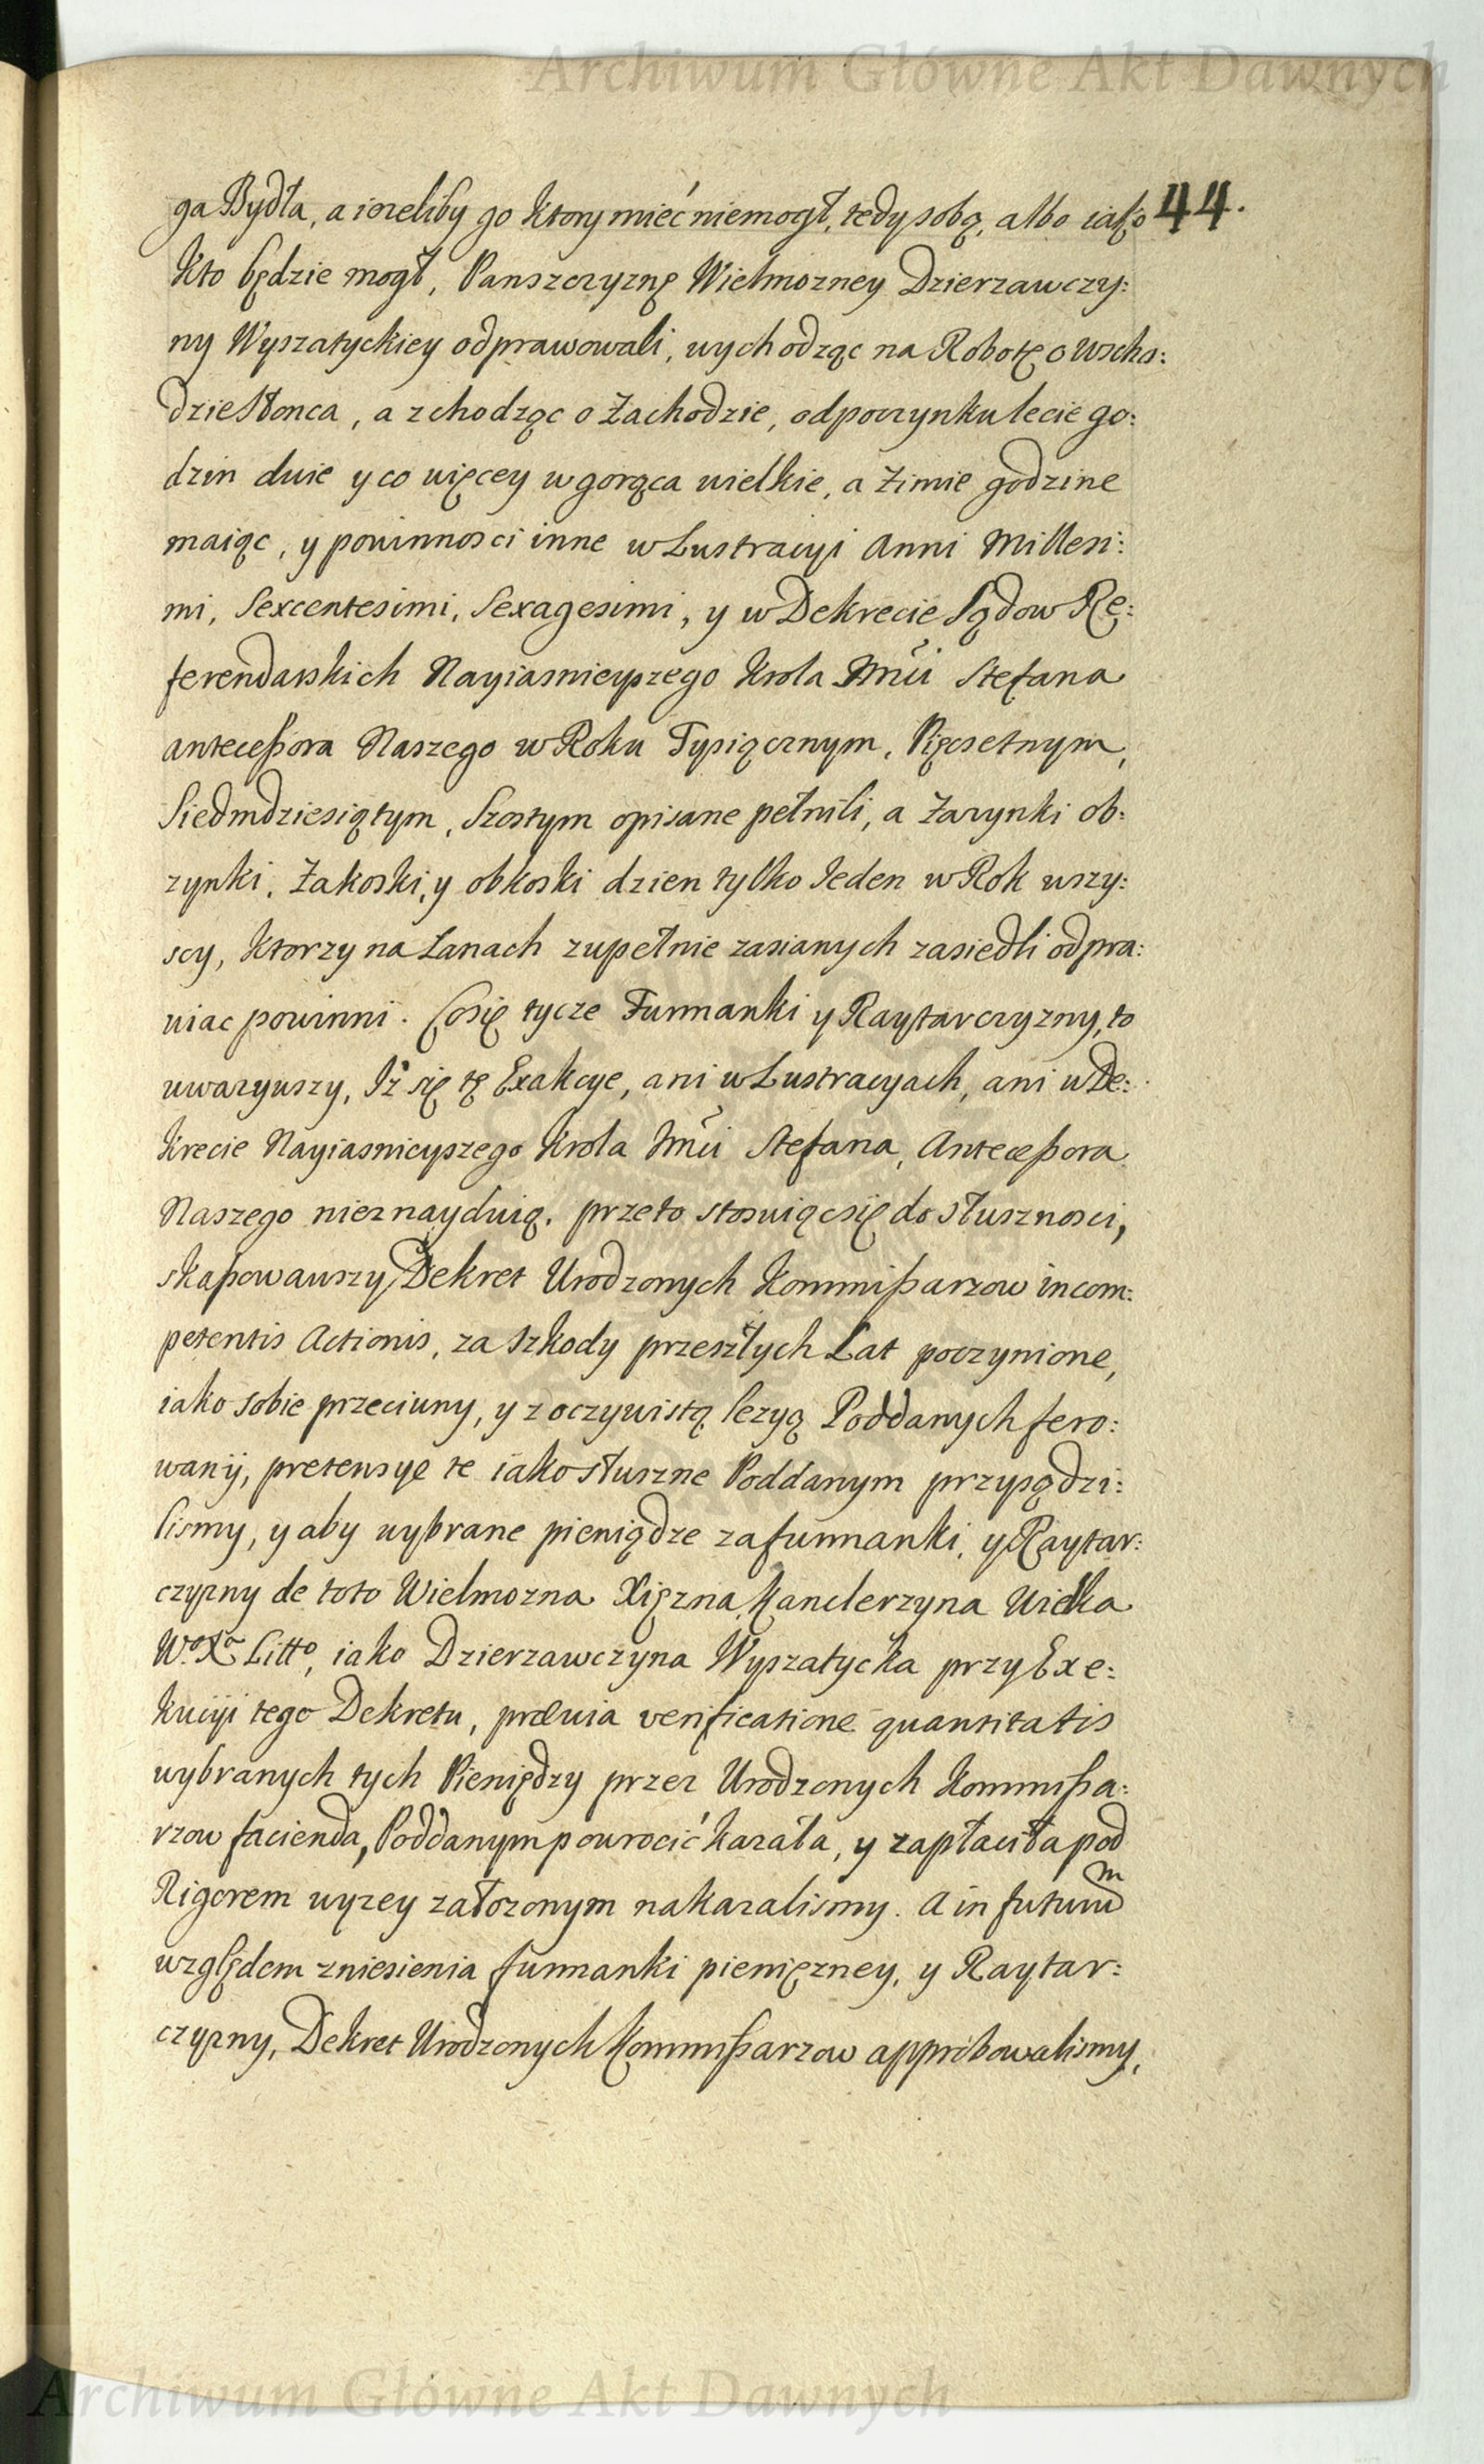 Archiwum Główne Akt Dawnych
44.
ga Bydła, a iezeliby go ktory mieć niemogł, tedy sobą, albo iako
kto będzie mogł, Panszczyznę Wielmozney Dzierzawczy:
ny Wyszatyckiey odprawowali, wychodząc na Robotę o wscho:
dzie Słonca, a zchodząc o Zachodzie, odpoczynku lecie go:
dzin dwie y co więcey w gorąca wielkie, a Zimie godzine
maiąc, y powinnosci inne w Lustracyi Anni Millesi:
mi, Sexcentesimi, Sexagesimi, y w Dekrecie Sądow Re:
ferendarskich Nayiasnieyszego Krola Jmći Stefana
anteceßora Naszego w Roku Tysiącznym, Pięcsetnym,
Siedmdziesiątym, Szostym opisane pełnili, a Zazynki ob:
zynki, Zakoski, y obkoski dzien tylko Jeden w Rok wszy:
scy, ktorzy na Lanach zupełnie zasianych zasiedli odpra:
wiac powinni. Co się tycze Furmanki y Raytarczyzny, to
uwazywszy, Iż się tę Exakcye, ani w Lustracyach, ani w De:
krecie Nayiasnieyszego Krola Jmći Stefana, Anteceßora
Naszego nieznayduią, przeto stosuiąc się do słusznosci,
skaßowawszy Dekret Urodzonych Kommißarzow incom:
petentis Actionis, za szkody przeszłych Lat poczynione,
iako sobie przeciwny, y z oczywistą lezyą Poddanych fero:
wany, pretensye te iako słuszne Poddanym przysądzi:
lismy, y aby wybrane pieniądze za furmanki, y Raytar:
czyzny de toto Wielmozna Xięzna Kanclerzyna Wielka
Wº Xª Littº, iako Dzierzawczyna Wyszatycka przy Exe:
kucyi tego Dekretu, prævia verificatione quantitatis
wybranych tych Pieniędzy przez Urodzonych Kommißa:
rzow facienda, Poddanym powrocić kazała, y zapłaciła pod
Rigorem wyzey załozonym nakazalismy. A in futurum
względem zniesienia furmanki pieniężney, y Raytar:
czyzny, Dekret Urodzonych Kommißarzow approbowalismy,
Archiwum Główne Akt Dawnych